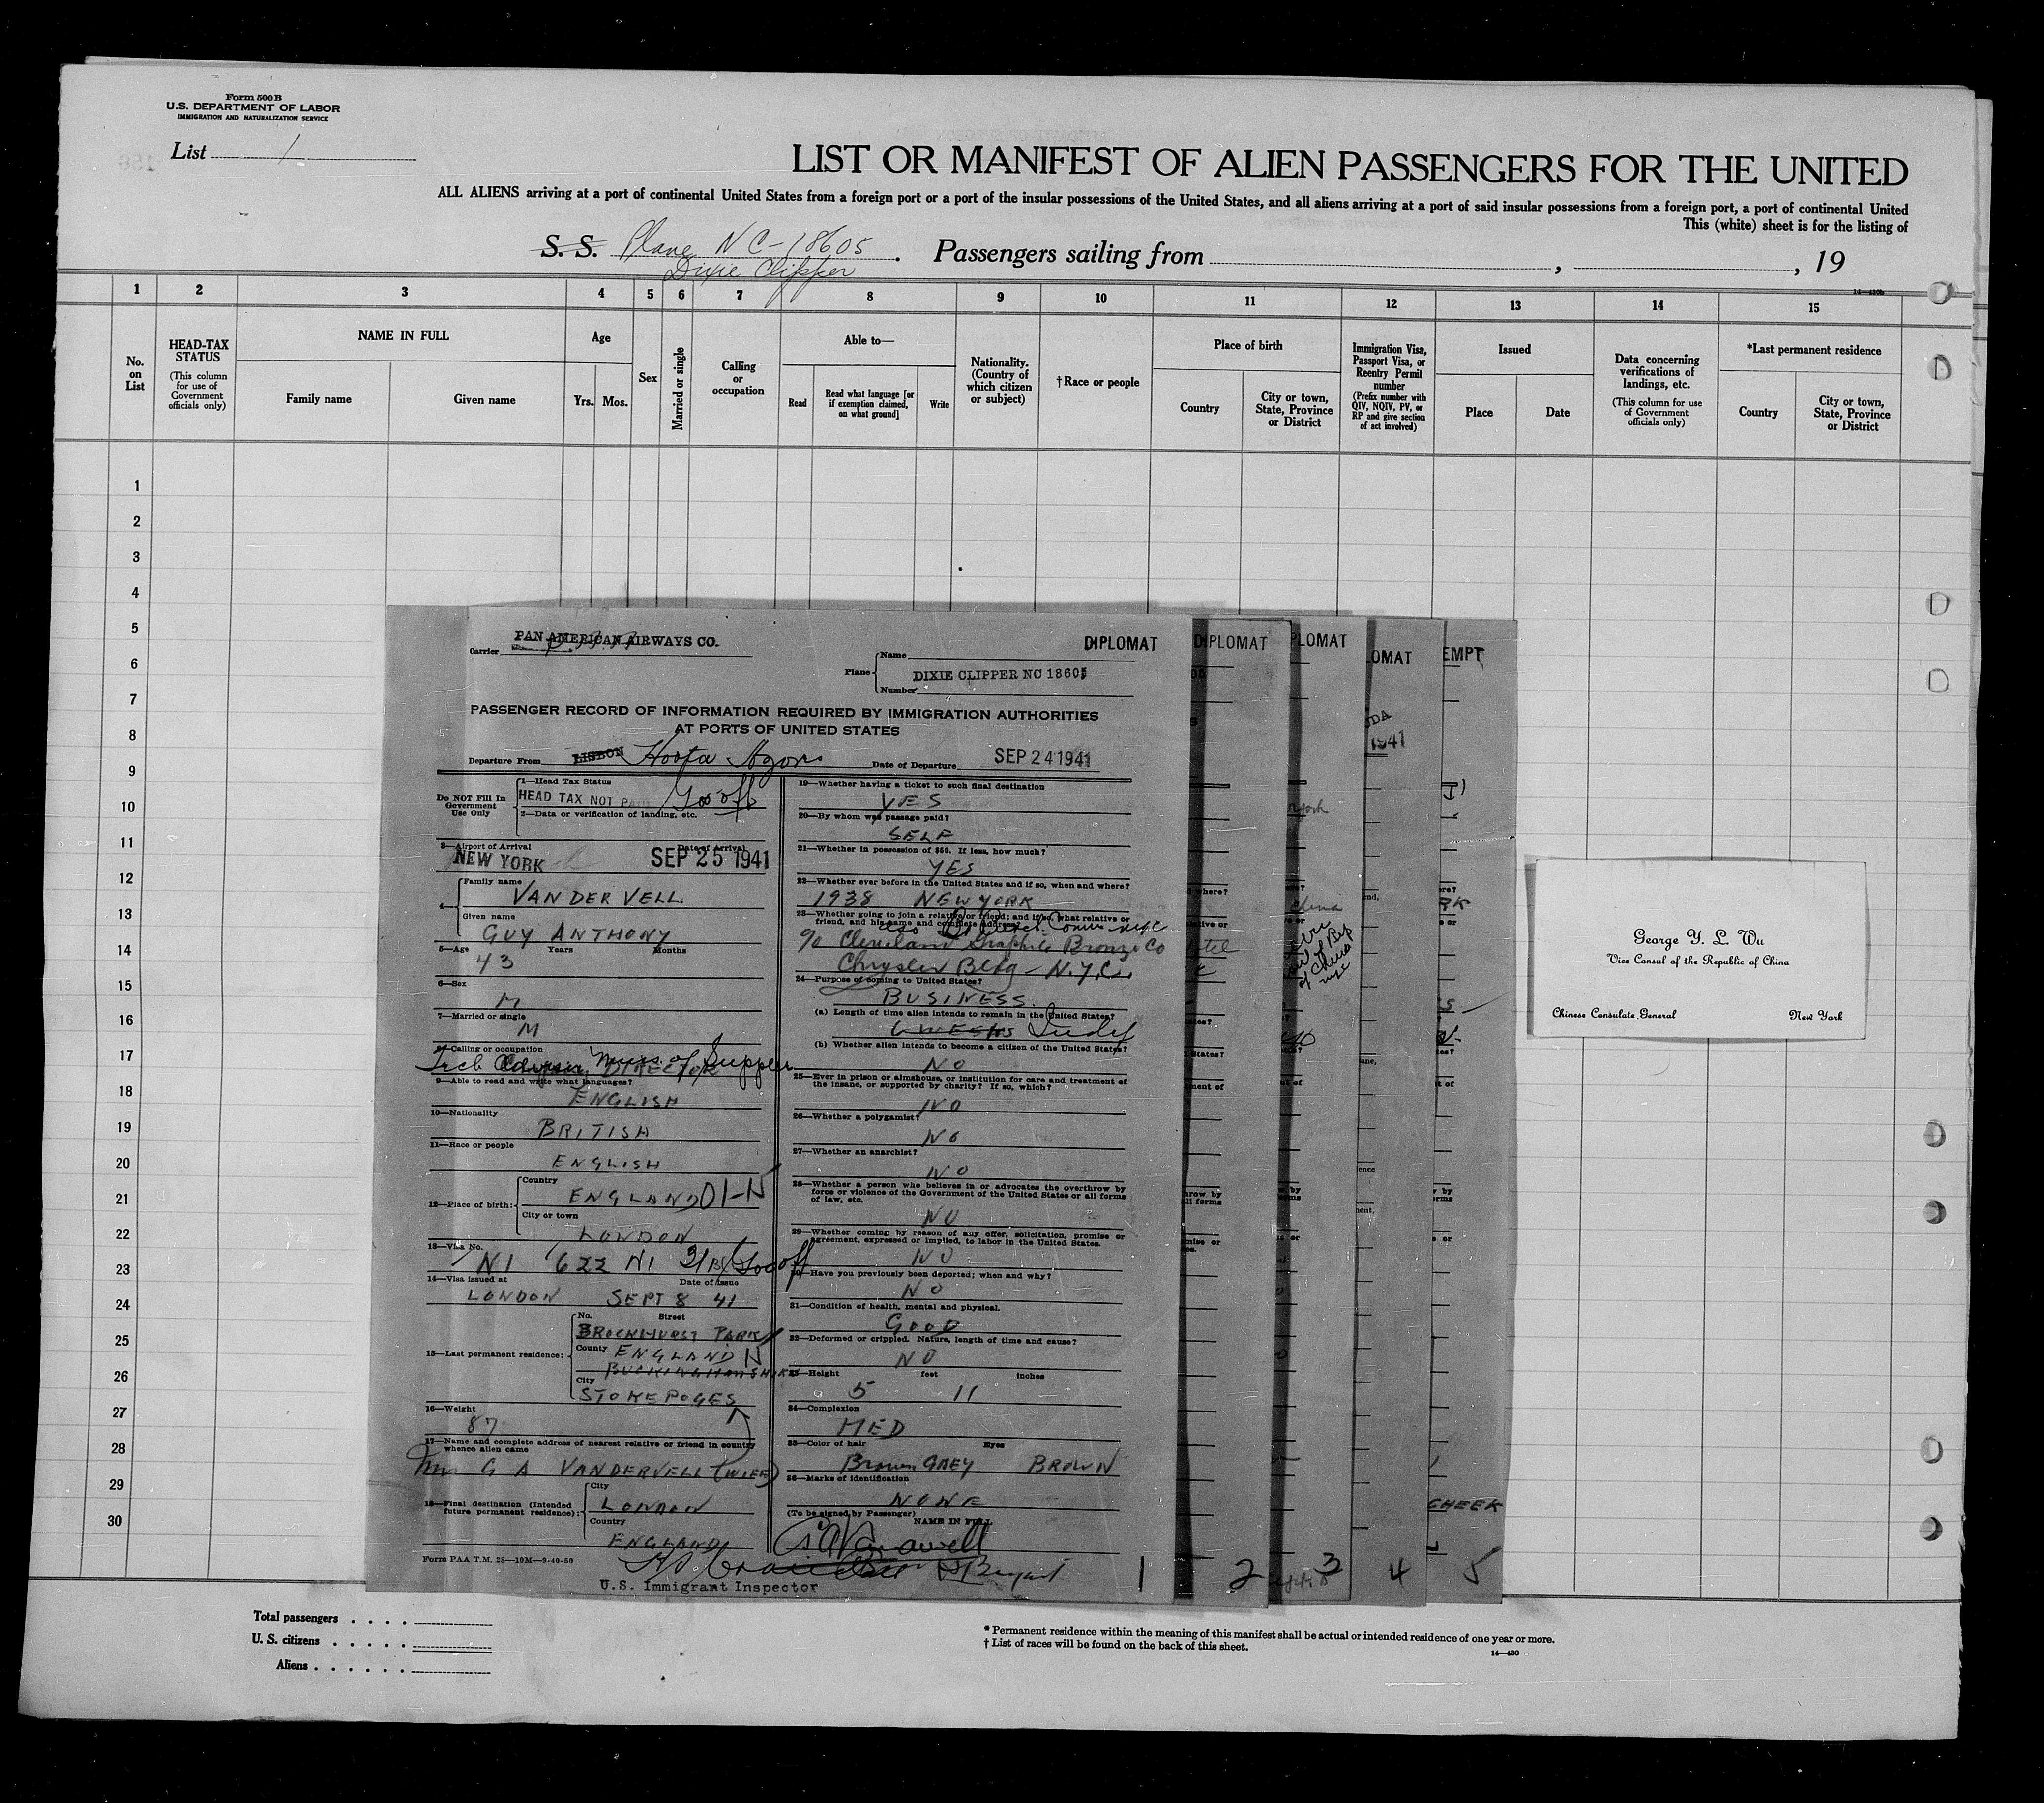 Form 500 B
U.S. DEPARTMENT OF LABOR
IMMIGRATION AND NATURALIZATION SERVICE
List 1
LIST OR MANIFEST OF ALIEN PASSENGERS FOR THE UNITED
ALL ALIENS arriving at a port of continental United States from a foreign port or a port of the insular possessions of the United States, and all aliens arriving at a port of said insular possessions from a foreign port, a port of continental United
This (white) sheet is for the listing of
S. S. Plane NC-18605 . Passengers sailing from , , 19
Dixie Clipper
1 2 3 4 5 6 7 8 9 10 11 12 13 14 15
No. on List
HEAD-TAX STATUS
(This column for use of Government officials only)
NAME IN FULL
Family name
Given name
Age
Yrs. Mos.
Sex
Married or single
Calling or occupation
Able to—
Read
Read what language [or if exemption claimed, on what ground]
Write
Nationality. (Country of which citizen or subject)
†Race or people
Place of birth
Country
City or town, State, Province or District
Immigration Visa, Passport Visa, or Reentry Permit number
(Prefix number with QIV, NQIV, PV, or RP and give section of act involved)
Issued
Place
Date
Data concerning verifications of landings, etc.
(This column for use of Government officials only)
*Last permanent residence
Country
City or town, State, Province or District
1
2
3
4
5
6
7
8
9
10
11
12
13
14
15
16
17
18
19
20
21
22
23
24
25
26
27
28
29
30
PAN AMERICAN AIRWAYS CO.
Carrier
DIPLOMAT
Plane
Name
DIXIE CLIPPER NC 18605
Number
PASSENGER RECORD OF INFORMATION REQUIRED BY IMMIGRATION AUTHORITIES
AT PORTS OF UNITED STATES
Departure From LISBON Horta Azores Date of Departure SEP 24 1941
Do NOT Fill In Government Use Only
1—Head Tax Status
HEAD TAX NOT Gov off
2—Data or verification of landing, etc.
3—Airport of Arrival Date of Arrival
NEW YORK SEP 25 1941
4—
Family name
VANDERVELL.
Given name
GUY ANTHONY
5—Age Years Months
43
6—Sex
M
7—Married or single
M
8—Calling or occupation
Tech DIRECTOR
9—Able to read and write what languages?
ENGLISH
10—Nationality
BRITISH
11—Race or people
ENGLISH
12—Place of birth:
Country
ENGLAND
City or town
LONDON
13—Visa No.
NI 622 NI Gov off
14—Visa issued at Date of issue
LONDON SEPT 8 41
15—Last permanent residence:
No. Street
BROCKHURST PARK
County ENGLAND
BUCKINGHAMSHIRE
City
STOKE POGES
16—Weight
87
17—Name and complete address of nearest relative or friend in country whence alien came
Mrs G A VANDERVELL (WIFE)
18—Final destination (Intended future permanent residence):
City
LONDON
Country
ENGLAND
Form PAA T.M. 28—10M—9-40-50
U.S. Immigrant Inspector
19—Whether having a ticket to such final destination
YES
20—By whom was passage paid?
SELF
21—Whether in possession of $50. If less, how much?
YES
22—Whether ever before in the United States and if so, when and where?
1938 NEW YORK
23—Whether going to join a relative or friend; and if so, what relative or friend, and his name and complete address.
% Cleveland Graphite Bronze Co
Chrysler Bldg – N.Y.C.
24—Purpose of coming to United States?
BUSINESS.
(a) Length of time alien intends to remain in the United States?
6 WEEKS Indef
(b) Whether alien intends to become a citizen of the United States?
NO
25—Ever in prison or almshouse, or institution for care and treatment of the insane, or supported by charity? If so, which?
NO
26—Whether a polygamist?
NO
27—Whether an anarchist?
NO
28—Whether a person who believes in or advocates the overthrow by force or violence of the Government of the United States or all forms of law, etc.
NO
29—Whether coming by reason of any offer, solicitation, promise or agreement, expressed or implied, to labor in the United States.
NO
30—Have you previously been deported; when and why?
NO
31—Condition of health, mental and physical.
GOOD
32—Deformed or crippled. Nature, length of time and cause?
NO
33—Height feet inches
5 11
34—Complexion
MED
35—Color of hair Eyes
Brown GREY BROWN
36—Marks of identification
NONE
(To be signed by Passenger)
NAME IN FULL
1
DIPLOMAT
2
PLOMAT
3
OMAT
1941
4
EMPT
CHEEK
5
George Y. L. Wu
Vice Consul of the Republic of China
Chinese Consulate General New York
Total passengers
U. S. citizens
Aliens
* Permanent residence within the meaning of this manifest shall be actual or intended residence of one year or more.
† List of races will be found on the back of this sheet.
14—430